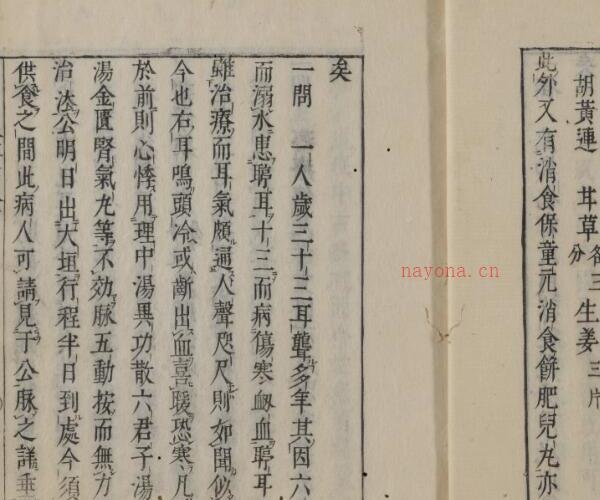 胡黃連 甘草各三分 生姜三片
此外又有消食保童元消食餅肥兒丸亦
矣
一問 一人歲三十三耳聾多年其因六
而溺水患聤耳十三而病傷寒衂血聤耳
雖治療而耳氣頗逼人聲咫尺則如聞似
今也右耳鳴頭冷或衂出血喜暖恐寒凡
於前則心悸用理中湯異功散六君子湯
湯金匱腎氣丸等不効脉五動按而無力
治法公明日出大垣行程半日到處今須
供食之間此病人可請見于公脉之詳垂
nayona.cn